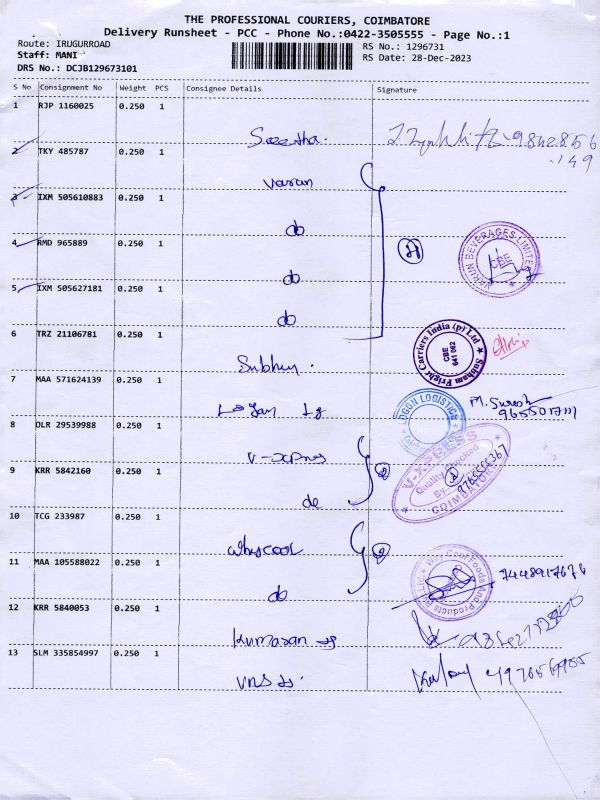 THE PROFESSIONAL COURIERS, COIMBATORE
Delivery Runsheet - PCC - Phone No.:0422-3505555 - Page No.:1
Route: IRUGURROAD
RS No.: 1296731
Staff: MANI
RS Date: 28-Dec-2023
DRS No.: DCJB129673101
S No Consignment No Weight PCS Consignee Details Signature
1 RJP 1160025 0.250 1
Seetha.
2 TKY 485787 0.250 1
varun
3 IXM 505610883 0.250 1
do
4 RMD 965889 0.250 1
do
VARUN BEVERAGES LIMITED
CBE
5 IXM 505627181 0.250 1
do
6 TRZ 21106781 0.250 1
Subham Fright Carriers India (p) Ltd
CBE
641 062
7 MAA 571624139 0.250 1
LOGON LOGISTICS
M. Suresh
8 DLR 29539988 0.250 1
V-XPRESS
Quality Checked
By
COIMBATORE
9 KRR 5842160 0.250 1
do
10 TCG 233987 0.250 1
Whycool
11 MAA 105588022 0.250 1
do
7448917676
12 KRR 5840053 0.250 1
Kumaran
13 SLM 335854997 0.250 1
VRS